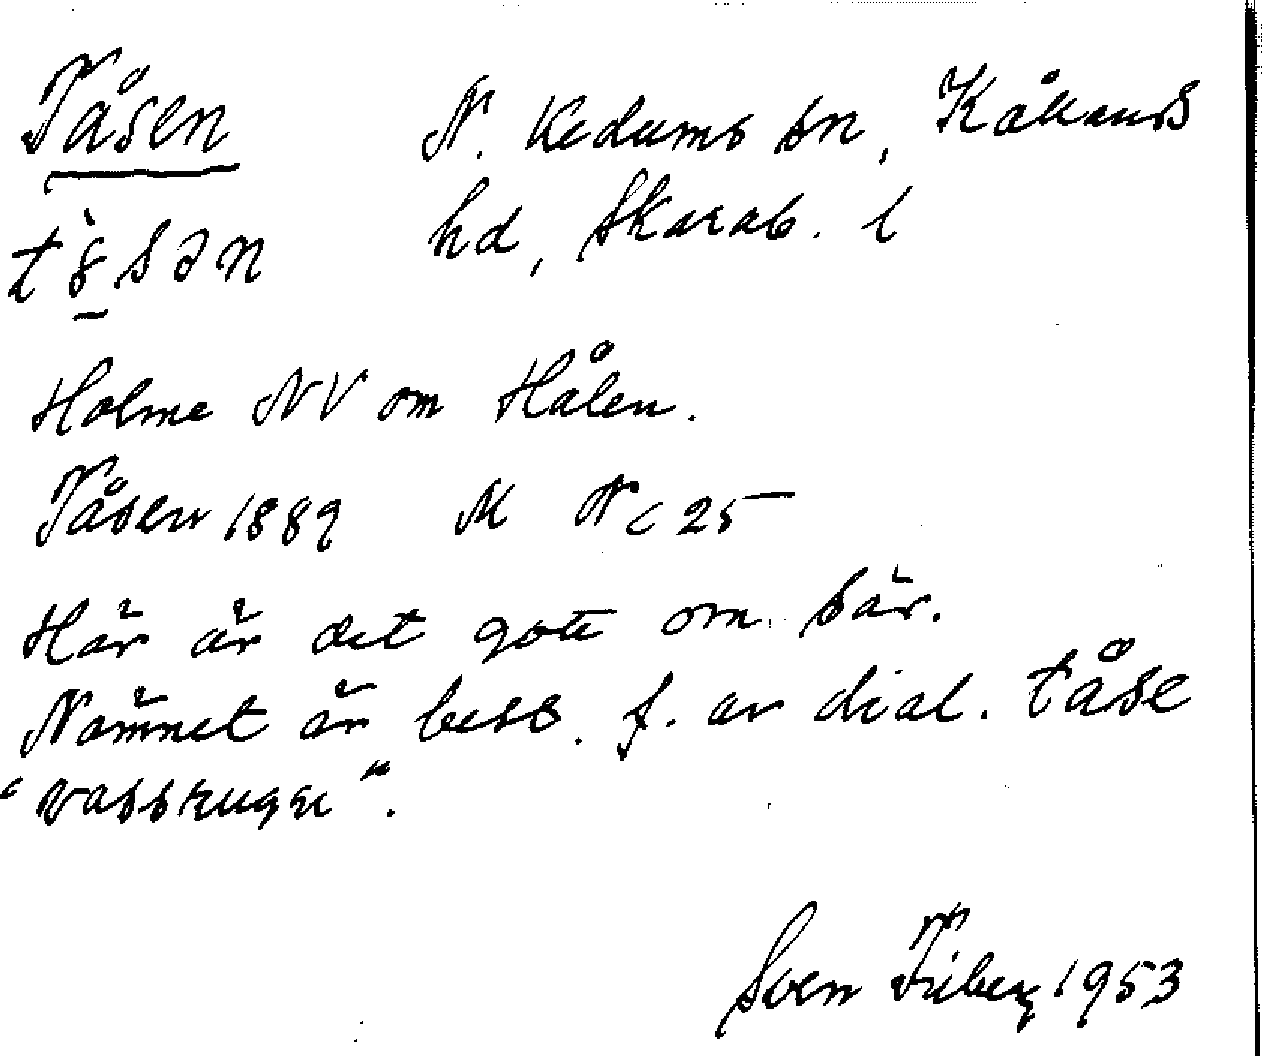 Tåsen N. Kedums sn, Kållands
tåsən hd, Skarab. l
Holme NV om Hålen.
Tåsen 1889 M N c 25
Här är det gott om säv.
Namnet är best. f. av dial. tåse
"vassrugge".
Sven Friberg 1953